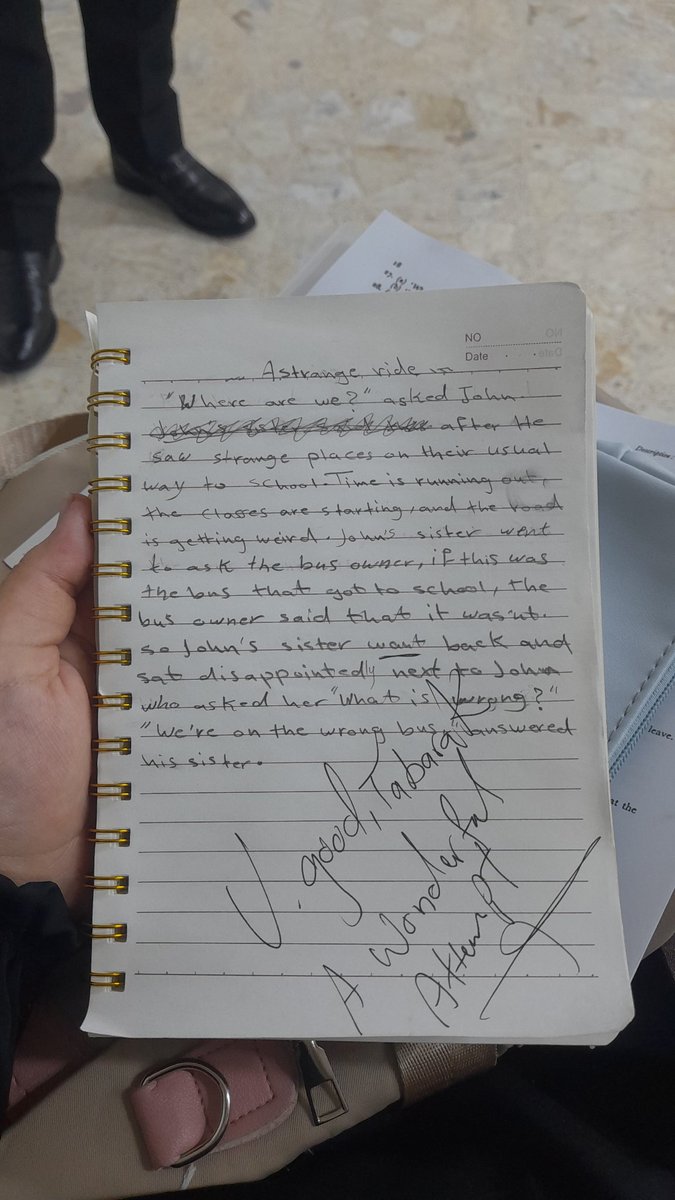 NO
Date
A strange ride
"Where are we?" asked John.
after He
saw strange places on their usual
way to school. Time is running out,
the classes are starting, and the road
is getting weird. John's sister went
to ask the bus owner, if this was
the bus that got to school, the
bus owner said that it was'nt.
so John's sister want back and
sat disappointedly next to John
who asked her "What is wrong?"
"We're on the wrong bus" answered
his sister.
V. good, Tabarak
A Wonderful
Attempt
Description
leave.
at the